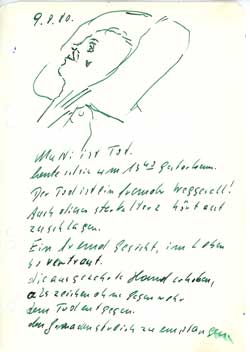 9.8.80.
Mutti ist Tot.
heute ist sie um 13 43 gestorben.
Der Tod ist ein fremder Weggesell!
Auch dieses starke Herz hört auf
zu schlagen.
Ein fremd Gesicht, im Leben
so vertraut.
die ausgezehrte Hand erhoben,
als zeichen ohne Gegenwehr
dem Tod entgegen.
den Gnadenstreich zu empfangen